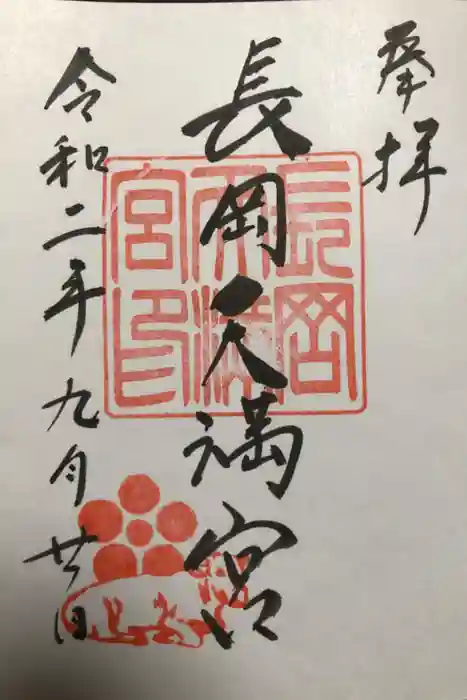 奉拝
長岡天満宮
長岡
天満
宮印
令和二年九月廿日